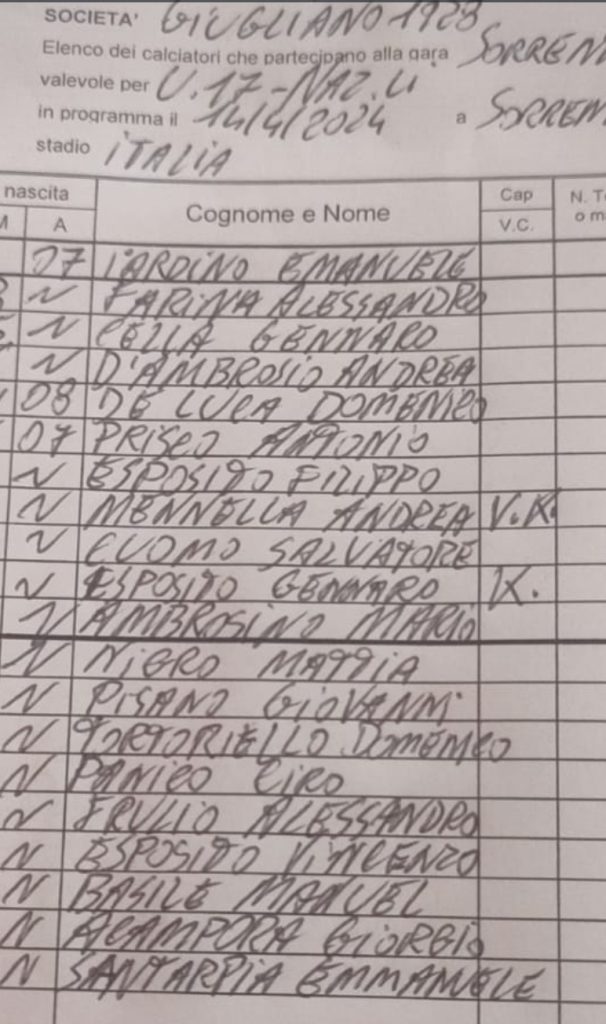 SOCIETA' GIUGLIANO 1928
Elenco dei calciatori che partecipano alla gara SORREN
valevole per U.17-NAZ.LI
in programma il 14/4/2024 a SORREN
stadio ITALIA
nascita Cognome e Nome Cap N. T
A V.C. o m
07 IARDINO EMANUELE
N FARINA ALESSANDRO
N CELLA GENNARO
N D'AMBROSIO ANDREA
08 DE LUCA DOMENICO
07 PRISCO ANTONIO
N ESPOSITO FILIPPO
N MENNELLA ANDREA V.K.
N CUOMO SALVATORE
N ESPOSITO GENNARO K.
N AMBROSINO MARIO
N NIGRO MATTIA
N PISANO GIOVANNI
N TORTORIELLO DOMENICO
N PANICO CIRO
N FRULIO ALESSANDRO
N ESPOSITO VINCENZO
N BASILE MANUEL
N ACAMPORA GIORGIO
N SANTARPIA EMMANUELE